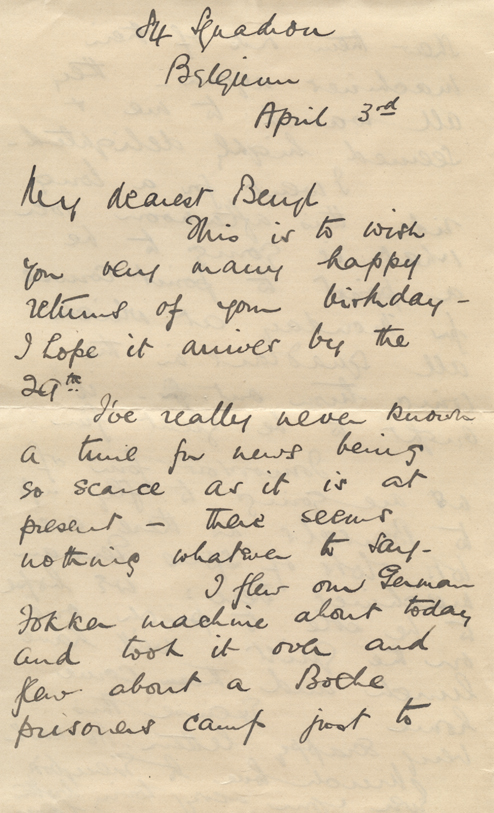 84 Squadron
Belgium
April 3rd
My dearest Beryl
This is to wish
you very many happy
returns of your birthday -
I hope it arrives by the
29th.
I've really never known
a time for news being
so scarce as it is at
present - there seems
nothing whatever to say-
I flew our German
Fokker machine about today
and took it over and
flew about a Boche
prisoners camp just to